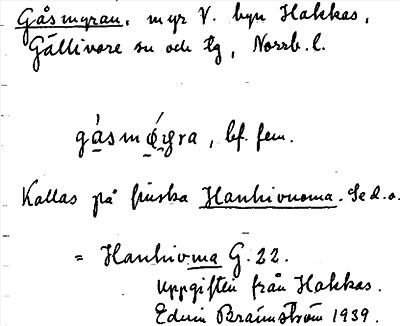 Gåsmyran, myr V. byn Hakkas,
Gällivare sn och tg, Norrb. l.
gåsmyra, bf. fem.
Kallas på finska Hanhivuoma. Se d. o.
= Hanhivma G. 22.
Uppgiften från Hakkas.
Edvin Brännström 1939.